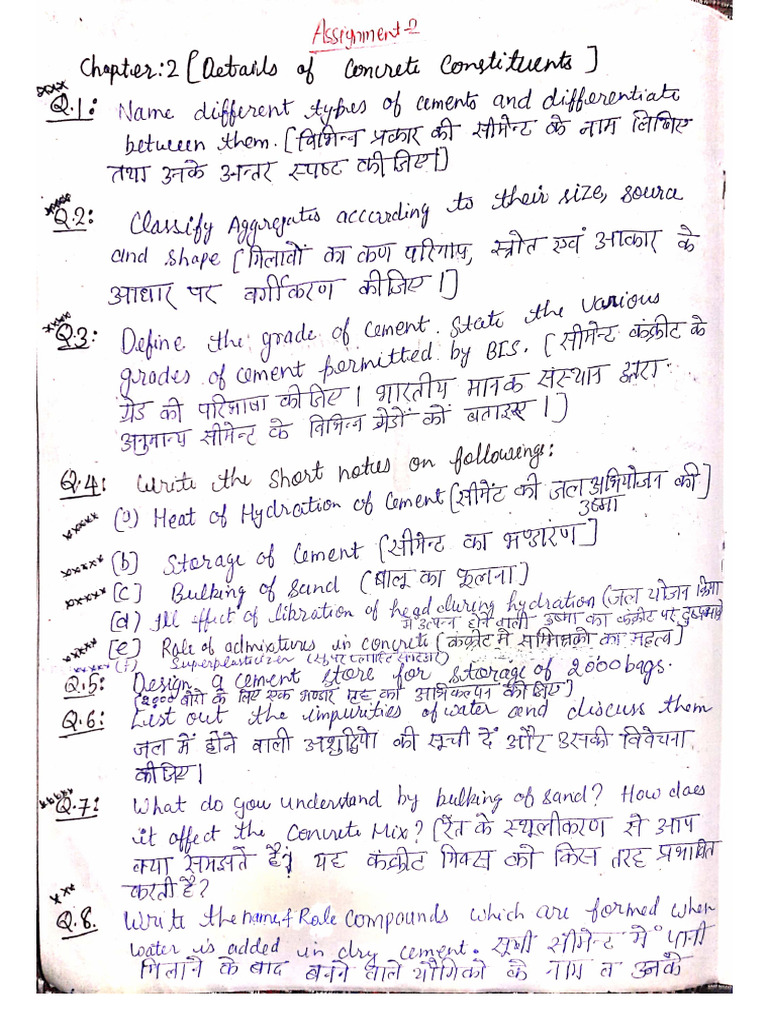 Assignment-2
Chapter:2 [Details of Concrete Constituents]
xxxx
Q.1: Name different types of cements and differentiate
between them. [विभिन्न प्रकार की सीमेन्ट के नाम लिखिए
तथा उनके अन्तर स्पष्ट कीजिए।]
xxxx
Q.2: Classify Aggregates according to their size, source
and shape [मिलावों का कण परिमाप, स्त्रोत एवं आकार के
आधार पर वर्गीकरण कीजिए।]
xxxx
Q.3: Define the grade of cement. State the various
grades of cement permitted by BIS. [सीमेन्ट कंक्रीट के
ग्रेड की परिभाषा कीजिए। भारतीय मानक संस्थान द्वारा
अनुमान्य सीमेन्ट के विभिन्न ग्रेडों को बताइए।]
Q.4: Write the short notes on followings:
xxxxx (a) Heat of Hydration of Cement [सीमेंट की जल अभियोजन की]
उष्मा
xxxxx [b] Storage of Cement [सीमेन्ट का भण्डारण]
xxxxx [c] Bulking of Sand (बालू का फूलना)
(d) Ill effect of libration of head during hydration (जल योजन क्रिया
में उत्पन्न होने वाली उष्मा का कंक्रीट पर दुष्प्रभाव
xxxxx [e] Role of admixtures in concrete (कंक्रीट में सम्मिश्रको का महत्व)
xxxxx (f) Superplastizer (सुपर प्लास्टिसाइजर)
Q.5: Design a cement store for storage of 2000 bags.
[2000 बोरो के लिए एक भण्डार गृह का अभिकल्पन कीजिए]
Q.6: List out the impurities of water and discuss them
जल में होने वाली अशुद्धियो की सूची दें और उसकी विवेचना
कीजिए।
xxxxx
Q.7: What do you understand by bulking of sand? How does
it affect the Concrete Mix? (रेत के स्थूलीकरण से आप
क्या समझते हैं। यह कंक्रीट मिक्स को किस तरह प्रभावित
करती है?
xxx
Q.8. Write the name & Role compounds which are formed when
water is added in dry cement. सूखी सीमेन्ट में पानी
मिलाने के बाद बनने वाले यौगिको के नाम व उनके